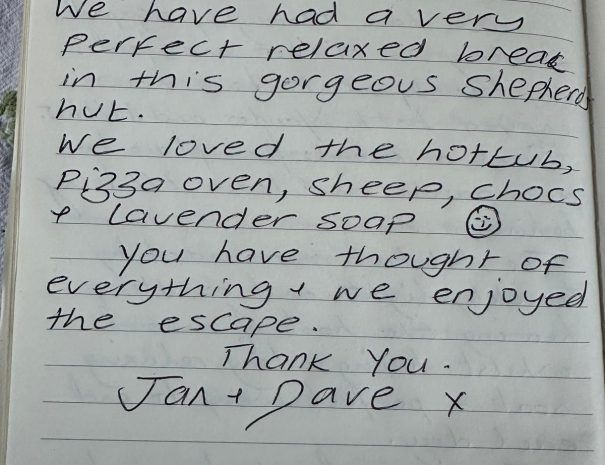 We have had a very
perfect relaxed break
in this gorgeous Shepherds
hut.
We loved the hottub,
Pizza oven, sheep, chocs
+ Lavender soap ☺
You have thought of
everything + we enjoyed
the escape.
Thank You.
Jan + Dave x